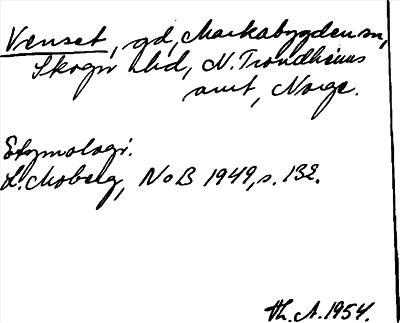 Venset, gd, Markabygden sn,
Skogn hd, N. Trondhiems
amt, Norge.
Etymologi.
L. Moberg, NoB 1949, s. 132.
Th. A. 1954.